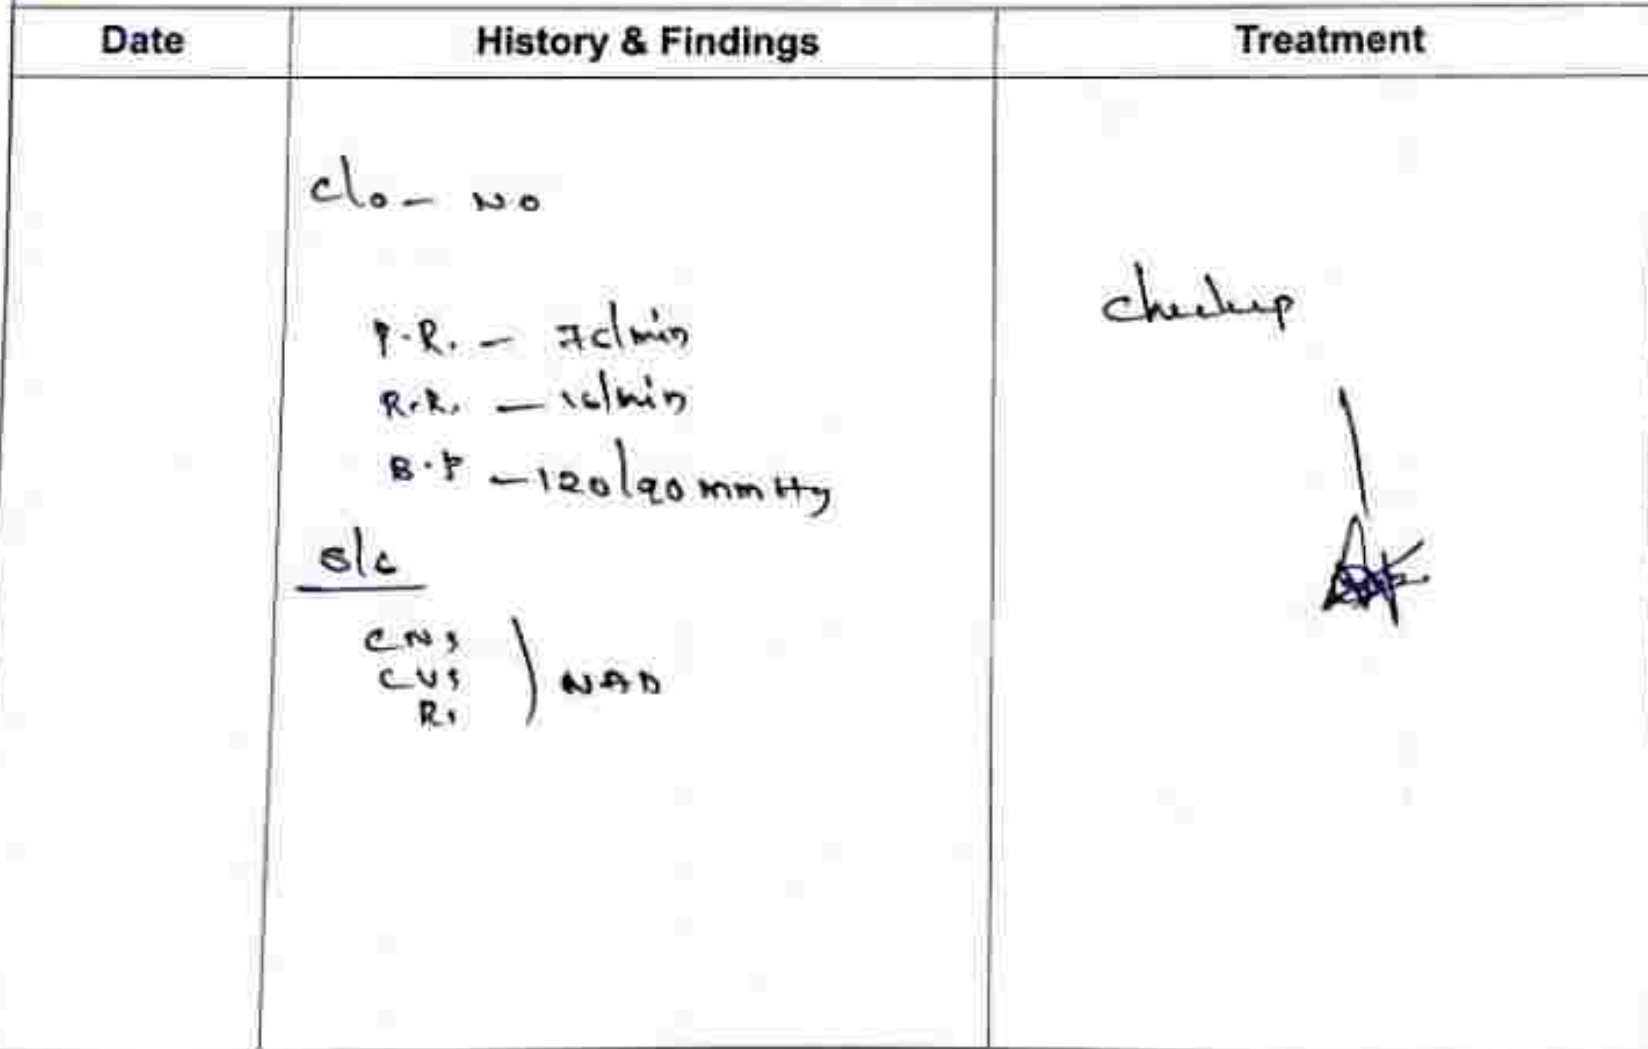 Date History & Findings Treatment
c/o - NO
checkup
P.R. - 76/min
R.R. - 16/min
B.P - 120/90 mmHg
S/E
CNS
CVS
RS
NAD